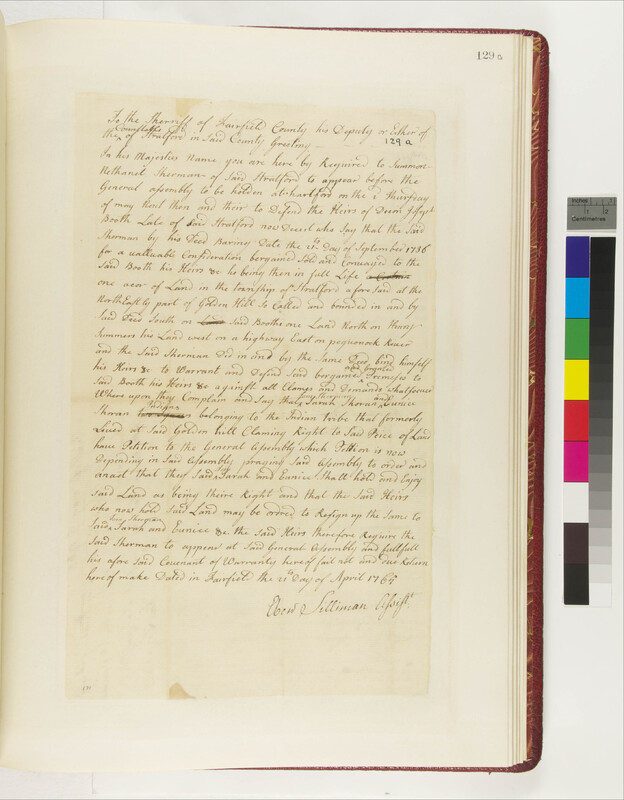 129 a
To the Sherreff of Fairfield County his Deputy or Either of
the Constables of Stratford in Said County Greeting
129.a
In his Majesties Name you are here by Required to Summon
Nethanel Sherman of Said Stratford to appear before the
General assembly to be holden at hartford on the 2d Thursday
of may Next then and their to Defend the Heirs of Decon Joseph
Booth Late of Said Stratford now Decest who Say that the Said
Sherman by his Deed Baring Date the Day of September 1736
for a valluable Consideration bergained Sold and Convaged to the
Said Booth his Heirs &c he being then in full Life
one acer of Land in the township of Stratford afore Said at the
North Eastly part of Golden Hill So Called and bounded in and by
Said Deed South on Said Booths one Land North on Henry
Summers his Land west on a highway East on pequonock River
and the Said Sherman Did in and by the Same Deed bind himself
his Heirs &c to Warrant and Defend Said bergained and premises to
Said Booth his Heirs &c against all Clames and Demands whatsoever
Where upon they Complain and Say that Sarah Shoran and Eunice
Shoran Indians belonging to the Indian Tribe that formerly
Lived at Said Golden hill Claming Right to Said Peice of Land
have Petition to the General Assembly which Petition is now
Depending in Said Assembly praying Said Assembly to order and
enact that they Said Sarah and Eunice Shall hold and Enjoy
Said Land as being theire Right and that the Said Heirs
who now hold Said Land may be ordred to Resign up the Same to
Said Sarah and Eunice &c the Said Heirs therefore Require the
Said Sherman to appear at Said General Assembly and fullfull
his afore Said Covenant of Warranty hereof fail not and due Return
here of make Dated in Fairfield the Day of April 1765
Ebenr Silliman Assist
inches
Centimetres